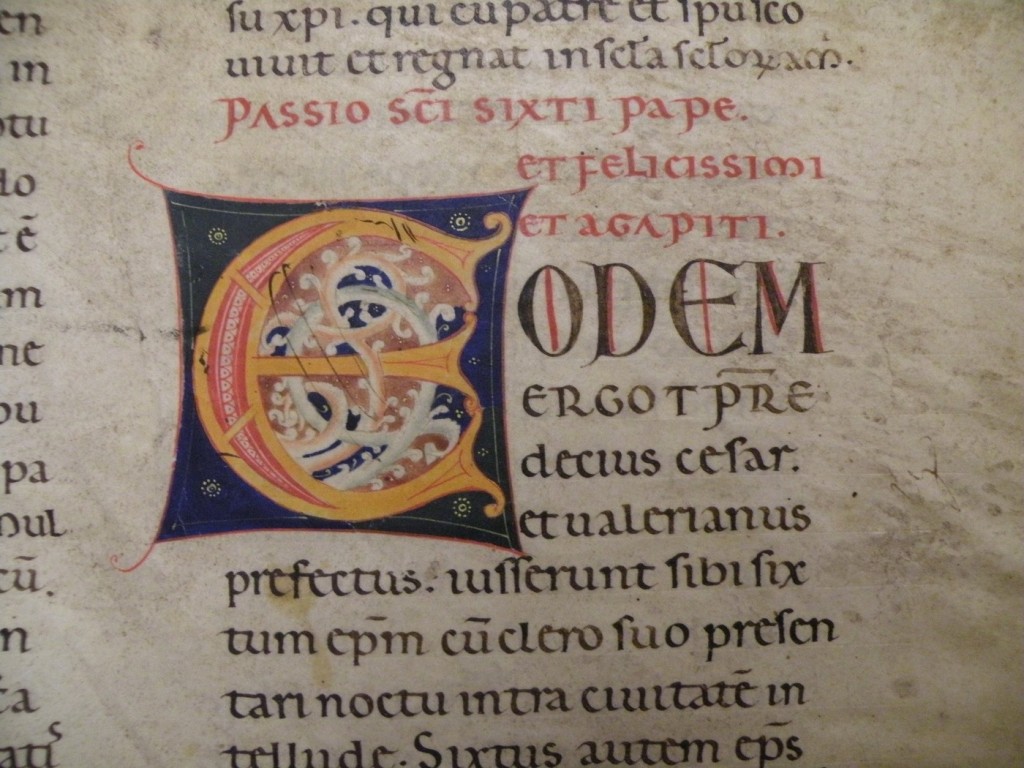 en
in
otu
do
tē
am
ne
ou
pa
cū.
n
ta
su xpi. qui cū patre et spu sco
uiuit et regnat in scła scłorꝝ am̄.
PASSIO SC̄I SIXTI PAPE.
ET FELICISSIMI
ET AGAPITI.
EODEM
ERGO TP̄RE
decius cesar.
et ualerianus
prefectus. iusserunt sibi six
tum ep̄m cū clero suo presen
tari noctu intra ciuitatē in
tellude. Sixtus autem ep̄s